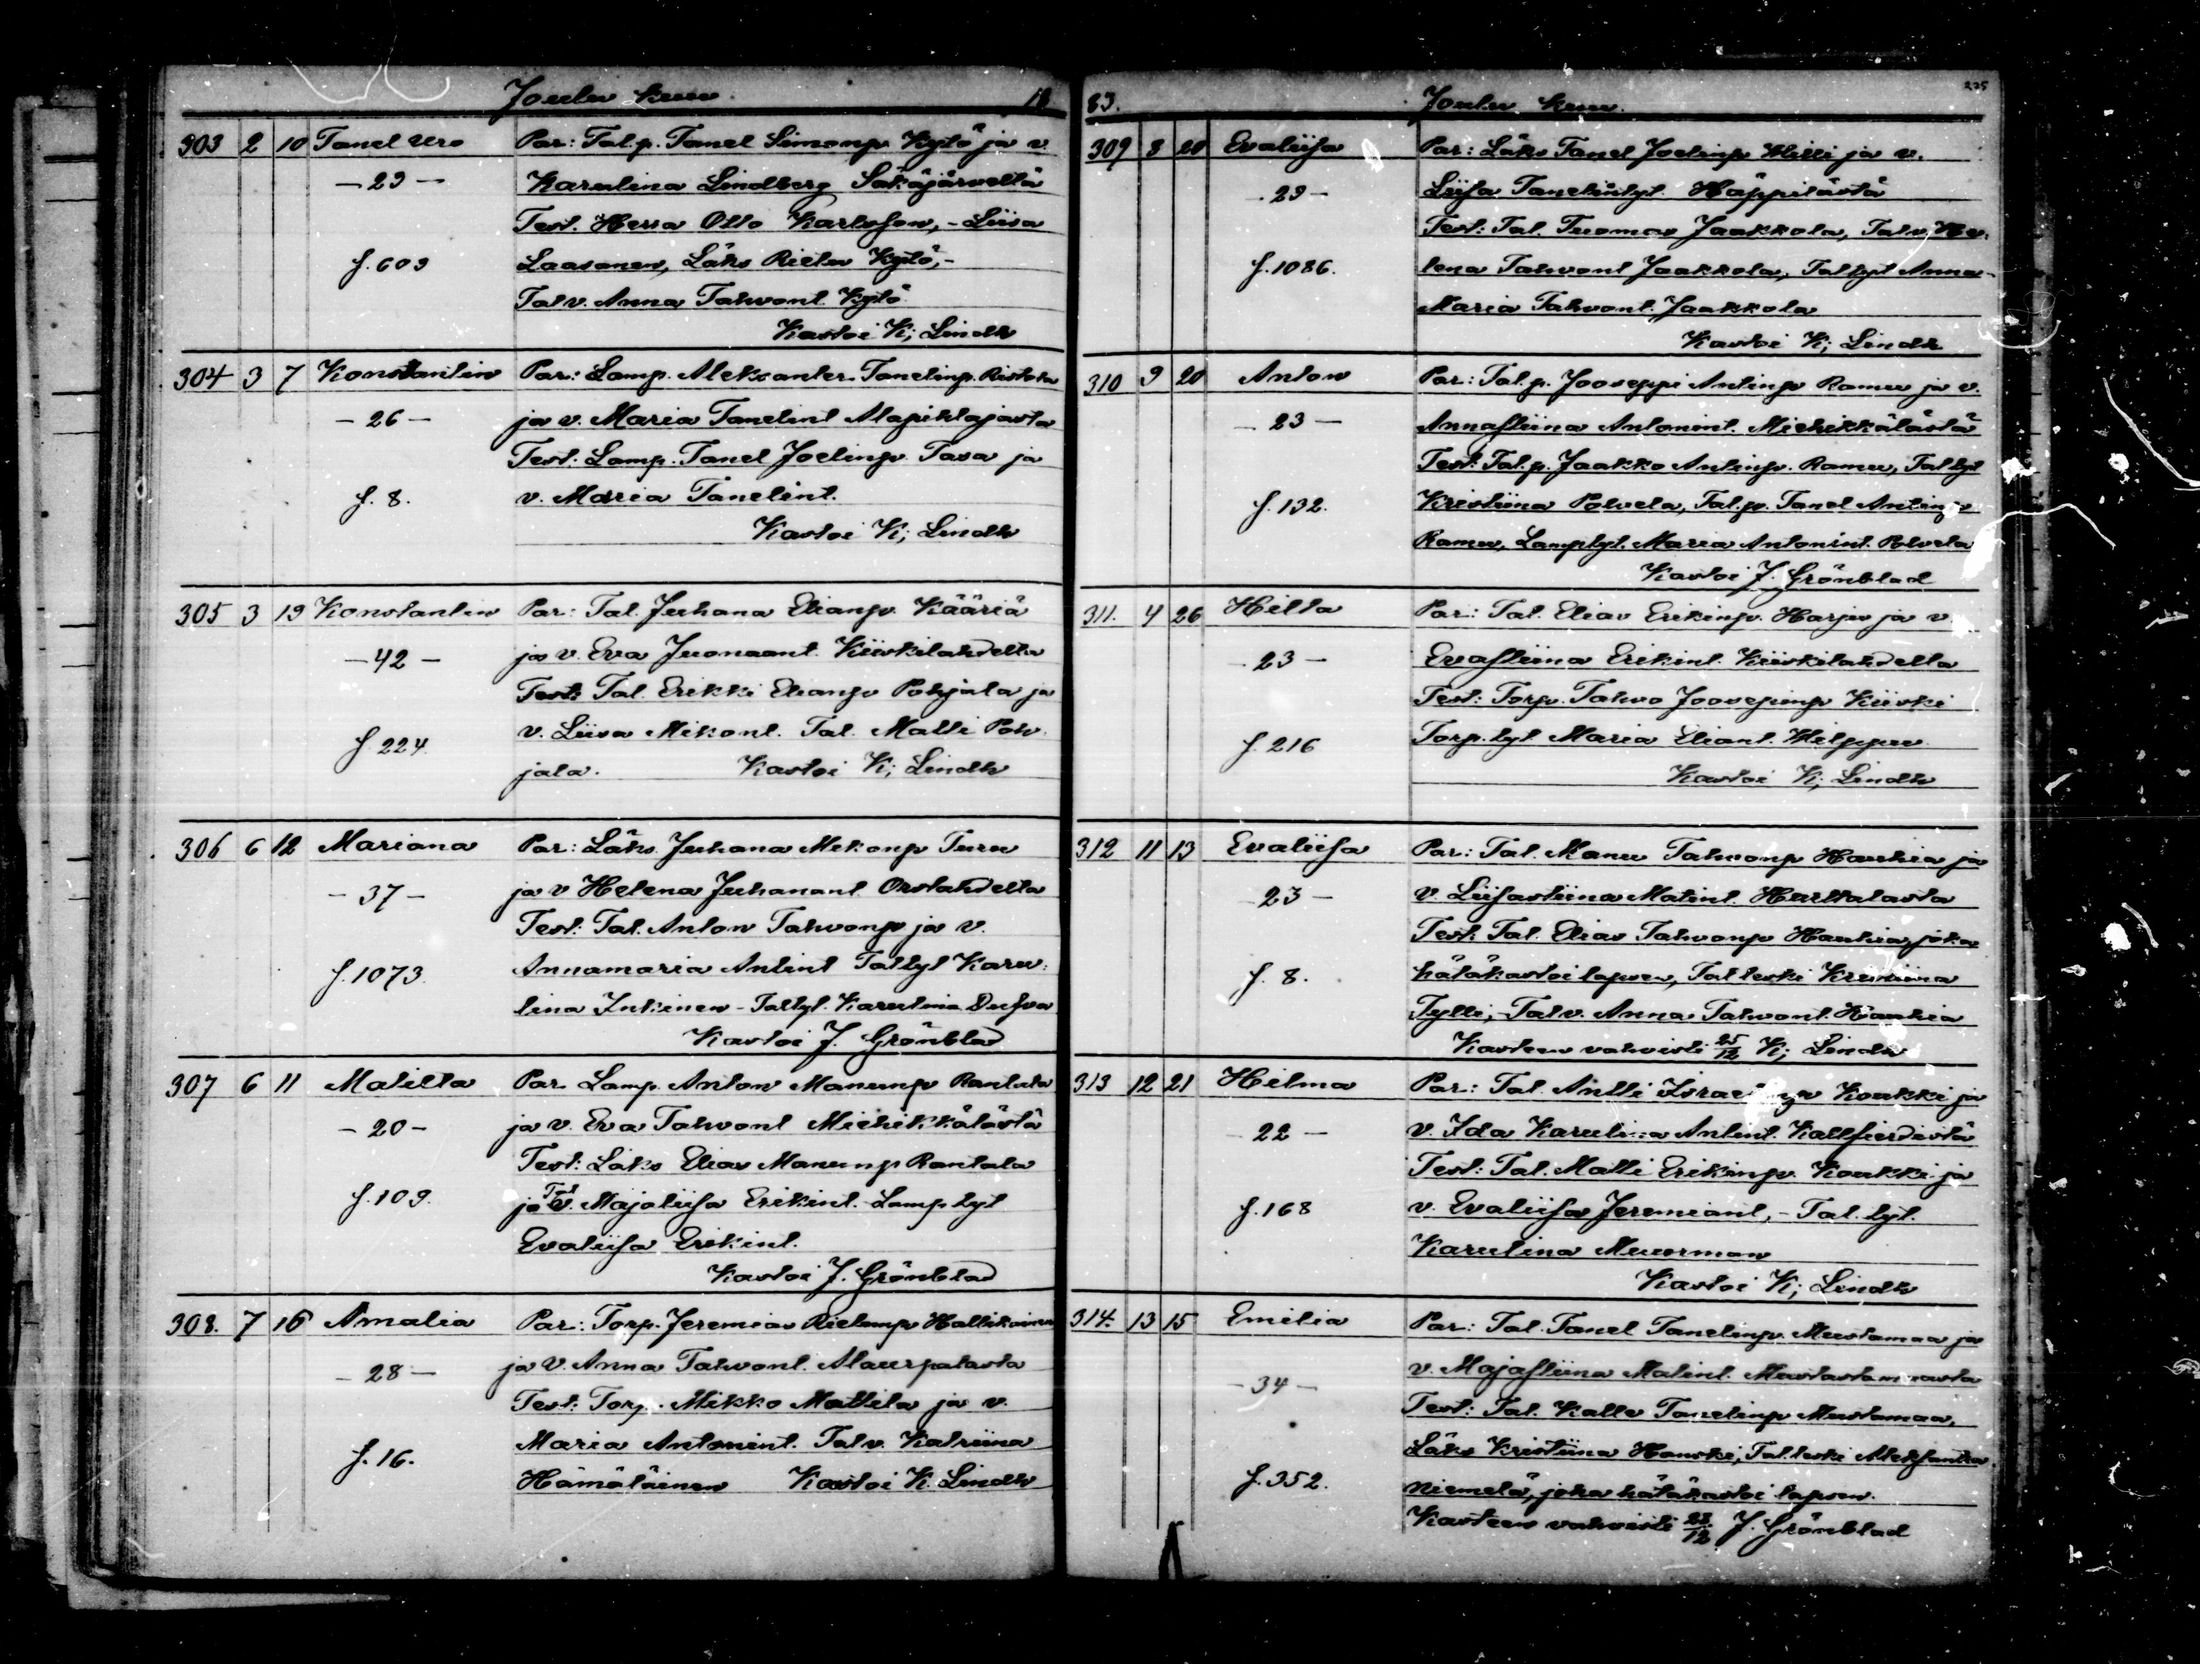 Joulu kuu. 18
303 2 10 Tanel Uro Par: Tal.p. Tanel Simonp. Kytö ja v.
- 29 - Karulina Lindberg Säkäjärveltä
Test. Herra Otto Karlsson, - Liisa
f. 603 Laasonen, Läks Rietu Kytö, -
Tal v. Anna Tahvont. Kytö
Kastoi K; Lindh
304 3 7 Konstantin Par: Lamp. Aleksanter Tanelinp. Ristola
- 26 - ja v. Maria Tanelint Alapihlajasta
Test: Lamp. Tanel Joelinp. Tasa ja
f. 8. v. Maria Tanelint.
Kastoi K; Lindh
305 3 19 Konstantin Par: Tal. Juhana Elianp. Kääriä
- 42 - ja v. Eva Juonaant. Kiiskilahdelta
Test: Tal. Erikki Elianp Pohjala ja
f. 224. v. Liisa Mikont. Tal. Matti Poh
jala. Kastoi K; Lindh
306 6 12 Mariana Par: Läks. Juhana Mikonp Turu
- 37 - ja v Helena Juhanant. Orslahdelta
Test: Tal. Anton Tahvonp ja v.
f. 1073. Annamaria Antint Tal tyt Karu:
lina Inkinen - Tal tyt. Karulina Dufva
Kastoi J. Grönblad
307 6 11 Matilta Par. Lamp. Anton Manunp Rantala
- 20 - ja v. Eva Tahvont Miehikkälästä
Test: Läks Elias Manunp Rantala
f. 109. ja Tal v. Majaliisa Erikint. Lamp tyt
Evaliisa Erikint.
Kastoi J. Grönblad
308. 7 16 Amalia Par: Torp. Jeremias Rietunp Hallikainen
- 28 - ja v. Anna Tahvont. Alaurpalasta
Test: Torp. Mikko Mattila ja v.
f. 16. Maria Antonint. Tal v. Katriina
Hämäläinen Kastoi K. Lindh
83. Joulu kuu. 275
309 8 20 Evaliisa Par: Läks Tanel Joelinp Hilli ja v.
- 29 - Liisa Tanelintyt. Häppilästä
Test: Tal. Tuomas Jaakkola, Tal v. He:
f. 1086. lena Tahvont Jaakkola, Tal tyt Anna-
Maria Tahvont. Jaakkola
Kastoi K; Lindh
310 9 20 Anton Par: Tal.p. Jooseppi Antinp Ramu ja v.
- 23 - Annastiina Antonint. Miehikkälästä
Test: Tal.p. Jaakko Antinp. Ramu, Tal tyt
f. 132. Kristiina Polvela, Tal.p. Tanel Antinp
Ramu, Lamp tyt. Maria Antonint. Polvela
Kastoi J. Grönblad
311. 4 26 Hilta Par: Tal. Elias Erikinp. Harju ja v.
- 23 - Evastiina Erikint. Kiiskilahdelta
Test: Torp. Tahvo Joosepinp Kiiski
f. 216 Torp. tyt Maria Eliant. Hilppu.
Kastoi K; Lindh
312 11 13 Evaliisa Par: Tal. Manu Tahvonp Haukia ja
23 - v. Liisastiina Matint. Hurttalasta
Test: Tal. Elias Tahvonp Haukia, joka
f. 8. hätäkastoi lapsen, Tal leski Kristiina
Tylli, - Tal v. Anna Tahvont. Haukia
Kasteen vahvisti 25/12 K; Lindh
313 12 21 Hilma Par: Tal. Antti Israelinp Koukki ja
22 - v. Ida Karulina Antint. Kallfierdistä
Test: Tal. Matti Erikinp. Koukki ja
f. 168 v. Evaliisa Jeremiant, - Tal. tyt.
Karulina Muurman
Kastoi K; Lindh
314. 13 15 Emilia Par: Tal. Tanel Tanelinp. Mustamaa ja
- 34 - v. Majastiina Matint. Mustastamaasta
Test: Tal. Kalle Tanelinp Mustamaa,
Läks Kristiina Hanski, Tal leski Aleksantra
f. 352. Niemelä, joka hätäkastoi lapsen.
Kasteen vahvisti 23/12 J. Grönblad